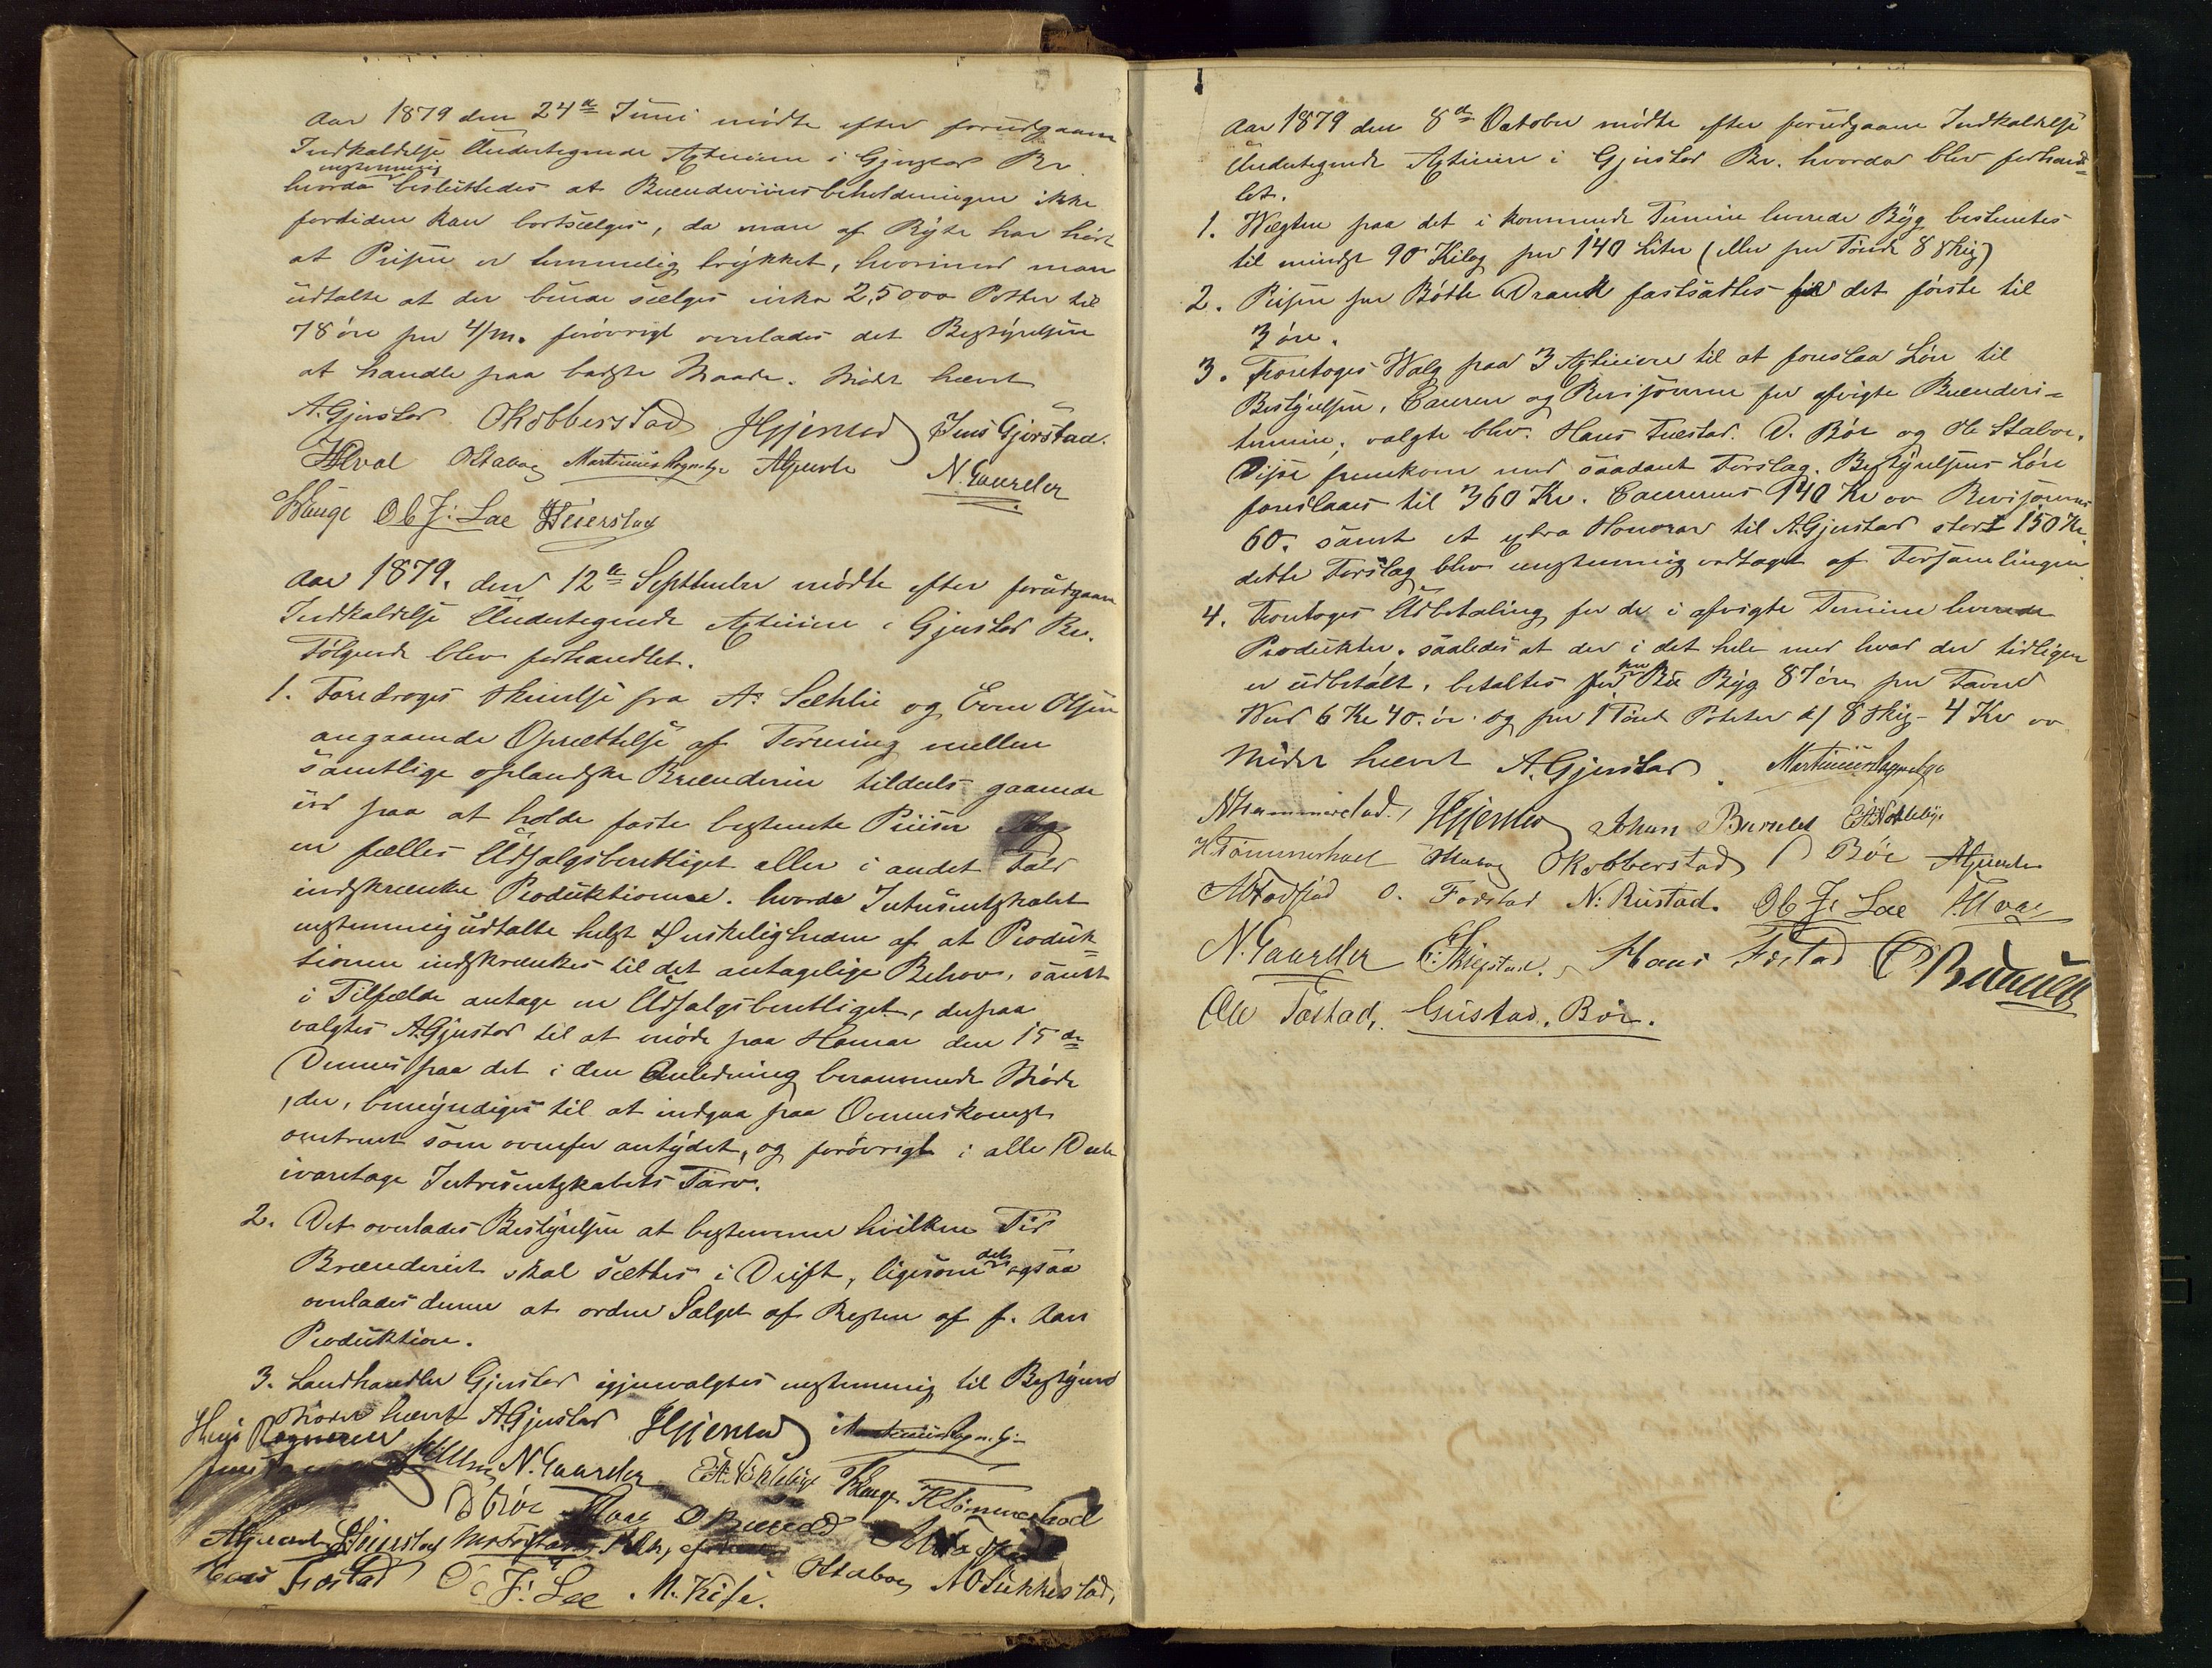 Aar 1879 den 24de Juni mødte efter forudgaaen
Indkaldelse Undertegnede Aktieiere i Gjerstad Br.
enstemmig
hvorda besluttedes at Brændeviinsbeholdningen ikke
fortiden kan bortsælges, da man af Rygte har hørt
at Prisen er temmelig trykket, hvorimod man
udtalte at der burde sælges cirka 25000 Potter til
78 øre per 4/m. forøvrigt overlades det Bestyrelsen
at handle paa bedste Maade. Mødet hævet
A. Gjerstad O Kobberstad HGjersed Jens Gjerstad.
HAlval OStaboe Martinius Rognstad N. Gaarder
KHauge Ole J: Lae
Aar 1879. den 12te September mødte efter forudgaaen
Indkaldelse Undertegnede Aktieiere i Gjerstad Br.
Følgende blev forhandlet.
1. Foredroges Skrivelse fra A. Sæhlie og Even Olsen
angaaende Oprettelse af Forening mellem
samtlige oplandske Brænderier tildeels gaaende
ud paa at holde faste bestemte Priser
en fælles Udsalgsberettiget eller i andet Fald
indskrænke Produktionen. hvorda Interesentskabet
enstemmig udtalte helst Ønskeligheden af at Produk-
tionen indskrænkes til det antagelige Behov, samt
i Tilfælde antage en Udsalgsberettiget, derpaa
valgtes A. Gjerstad til at møde paa Hamar den 15de
Dennes paa det i den Anledning berammede Møde
, der, bemyndiges til at indgaa paa Overenskomst
omtrent som ovenfor antydet, og forøvrigt i alle Dele
ivaretage Interesentskabets Tarv.
2. Det overlades Bestyrelsen at bestemme hvilken Tid
Brænderiet skal sættes i Drift, ligesom det ogsaa
overlades denne at ordne Salget af Resten af f. Aars
Produktion.
3. Landhandler Gjerstad igjenvalgtes enstemmig til Bestyrer
Mødet hævet A. Gjerstad HGjersed Martinius
N. Gaarder KHauge HTømmerhoel
D Bøe
Hans Fostad Ole J: Lee. M. Kise. OStaboe
Aar 1879 den 8de October mødte efter forudgaaen Indkaldelse
Undertegnede Aktieiere i Gjerstad Br. hvorda blev forhand-
let.
1. Vægten paa det i kommende Termin leverede Byg bestemtes
til mindst 90 Kilog per 140 Liter (eller per Tønde 8 Skig)
2. Prisen per Bøtte Drank fastsattes for det første til
3 øre.
3. Foretoges Valg paa 3 Aktieiere til at foreslaa Løn til
Bestyrelsen, Casserer og Revisorerne for afvigte Brænderi-
termin, valgte blev. Hans Fæstad. D. Bøe og Ole Staboe.
Disse fremkom med saadant Forslag. Bestyrelsens Løn
foreslaaes til 360 Kr. Cassererens 140 Kr og Revisorernes
60. samt et extra Honorar til A. Gjerstad stort 150 Kr.
dette Forslag blev enstemmig vedtaget af Forsamlingen.
4. Foretoges Udbetaling for de i afvigte Termin leverede
Produkter. saaledes at der i det hele med hvad der tidligere
er udbetalt, betaltes per Bu Byg 87 øre per Favn
Ved 6 Kr 40 ør. og per 1 Tønde Poteter a/ 8 Skig - 4 Kr
Mødet hævet A. Gjerstad. Martinius
HGjersed Johan
H. Tømmerhoel OStaboe O Kobberstad D Bøe
O. Fodstad N: Rustad. Ole J: Lae
N. Gaarder Hans Fæstad
Ole Fæstad, Gustad. Bøe.